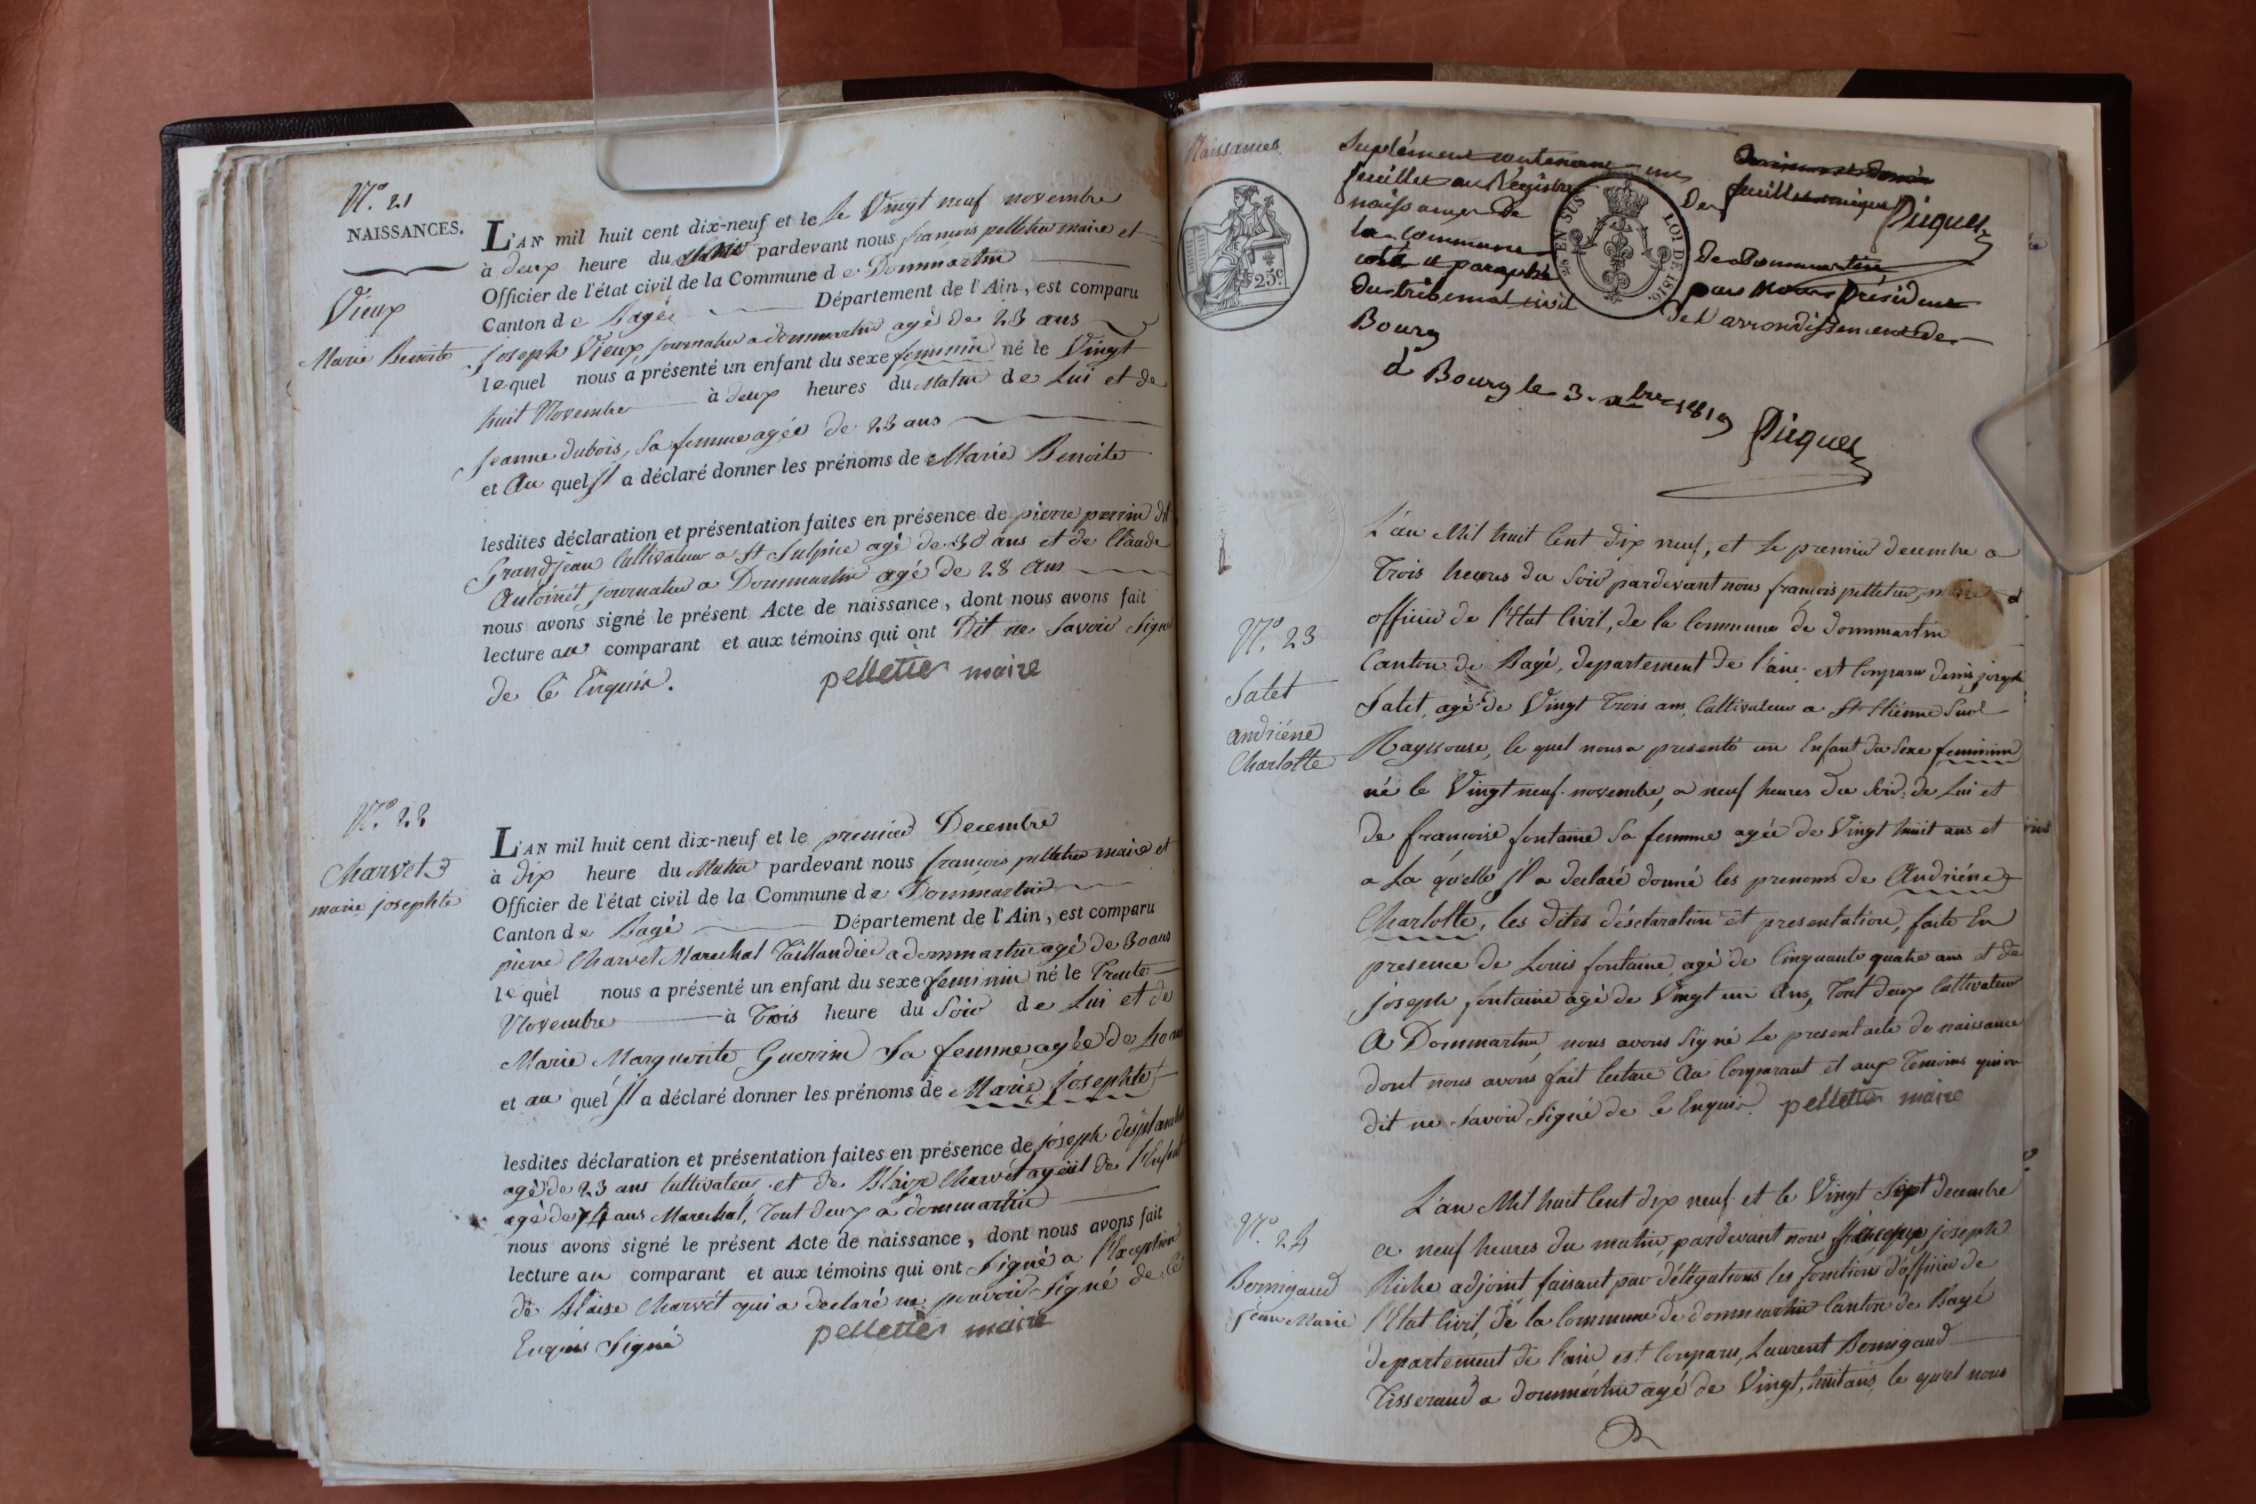 N.º 21
NAISSANCES.
Vieux
Marie Benoite
L'AN mil huit cent dix-neuf et le le Vingt neuf novembre
à deux heure du pardevant nous françois pelletier maire et
Officier de l'état civil de la Commune de Dommartin
Canton de Bagé Département de l'Ain, est comparu
joseph Vieux, journalier a dommartin agé de 23 ans
lequel nous a présenté un enfant du sexe feminin né le Vingt
huit Novembre à deux heures du Matin de Lui et de
jeanne dubois, Sa femme agée de 23 ans
et Au quel Il a déclaré donner les prénoms de Marie Benoite
lesdites déclaration et présentation faites en présence de pierre perrin dit
Grandjean Cultivateur a St Sulpice agé de 30 ans et de Claude
Antoinet journalier a Dommartin agé de 28 Ans
nous avons signé le présent Acte de naissance, dont nous avons fait
lecture au comparant et aux témoins qui ont Dit ne Savoir Signé
de Ce Enquis. pelletier maire
N.º 22
Charvet
marie josephte
L'AN mil huit cent dix-neuf et le premier Decembre
à dix heure du Matin pardevant nous françois pelletier maire et
Officier de l'état civil de la Commune de Dommartin
Canton de Bagé Département de l'Ain, est comparu
pierre Charvet Marechal Taillandier a dommartin agé de 30 ans
lequel nous a présenté un enfant du sexe feminin né le Trente
Novembre à Trois heure du Soir de Lui et de
Marie Marguerite Guerrin Sa femme agée de 40 ans
et au quel Il a déclaré donner les prénoms de Marie josephte
lesdites déclaration et présentation faites en présence de joseph
agé de 23 ans Cultivateur et de Blaise Charvet ayeul de l'Enfant
agé de 74 ans Marechal, Tout deux a dommartin
nous avons signé le présent Acte de naissance, dont nous avons fait
lecture au comparant et aux témoins qui ont Signé a l'Exception
de Blaise Charvet qui a declaré ne pouvoir Signé de Ce
Enquis Signé pelletier maire
Naissances
25 c.
25 EN SUS LOI DE 1816.
Suplément contenant un
feuillet au Registre Des
naissances de
la Commune de Dommartin
coté et paraphé par Nous Président
du tribunal civil de L'arrondissement de
Bourg
à Bourg le 3 Xbre 1819
Picquet
Picquet
N.º 23
Salet
andriéne
Charlotte
L'an Mil huit Cent dix neuf, et Le premier decembre a
Trois heures du Soir pardevant nous françois pelletier, maire et
officier de l'Etat Civil, de la Commune de dommartin
Canton de Bagé, departement de l'ain, est Comparu denis joseph
Salet, agé de Vingt Trois ans, Cultivateur a St Etienne Sur
Rayssouse, le quel nous a presenté un Enfant du Sexe feminin
né le Vingt neuf novembre, a neuf heures du Soir, de Lui et
de françoise fontaine Sa femme agée de Vingt huit ans et
a La qu'elle Il a declaré donné les prenoms de Andriéne
Charlotte, les dites désclaration et presentation, faite En
presence de Louis fontaine, agé de Cinquante quatre ans et de
joseph fontaine agé de Vingt un Ans, Tout deux Cultivateur
A Dommartin, nous avons Signé Le present acte de naissance
dont nous avons fait lecture Au Comparant et aux Temoins qui on
dit ne Savoir Signé de Ce Enquis. pelletier maire
N.º 24
Bernigaud
jean Marie
L'an Mil huit Cent dix neuf et le Vingt Sept decembre
a neuf heures du matin, pardevant nous joseph
Riche adjoint faisant par délégations les fonctions d'officier de
l'Etat Civil, de la Commune de dommartin Canton de Bagé
departement de l'ain, est Comparu, Laurent Bernigaud
Tisserand a dommartin agé de Vingt, huit ans, le quel nous